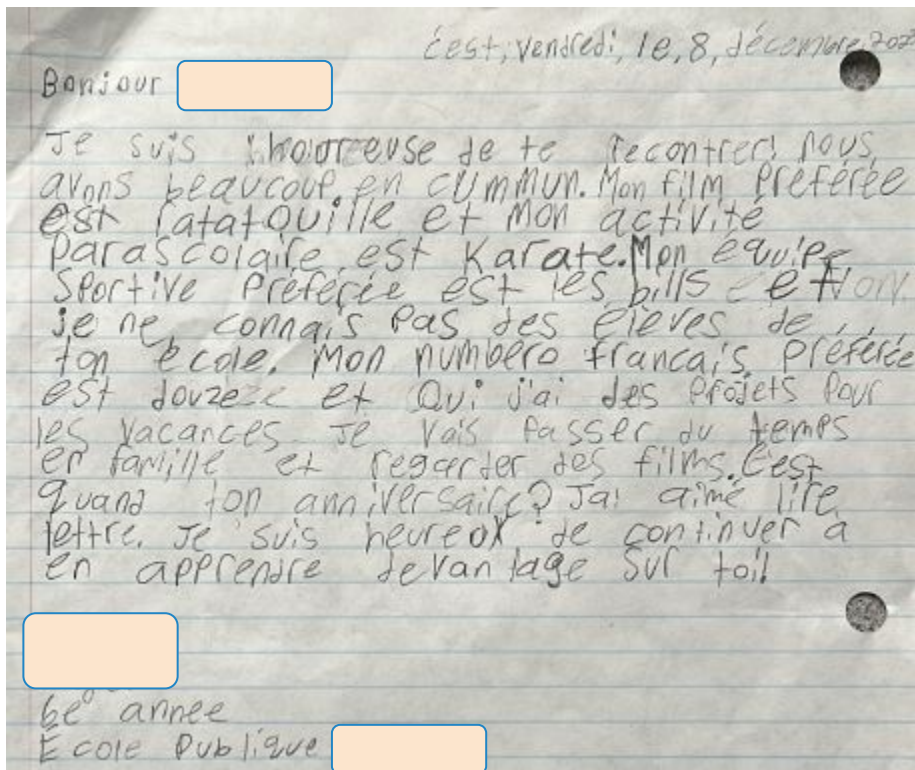 c'est, vendredi, le, 8, décembre, 202
Bonjour
Je suis houreuse de te recontrer! nous
avons beaucoup en cummun. Mon film préférée
est ratatouille et mon activité
parascolaire est Karate. Mon équipe
sportive préférée est les bills et non
je ne connais pas des élèves de
ton école. Mon numbéro francais préférée
est douzeze et Qui j'ai des projets pour
les vacances. Je vais passer du temps
en famille et regarder des films. C'est
quand ton anniversaire? Jai aimé lire
lettre. Je suis heureux de continuer à
en apprendre devantage sur toi!
6e année
École Publique